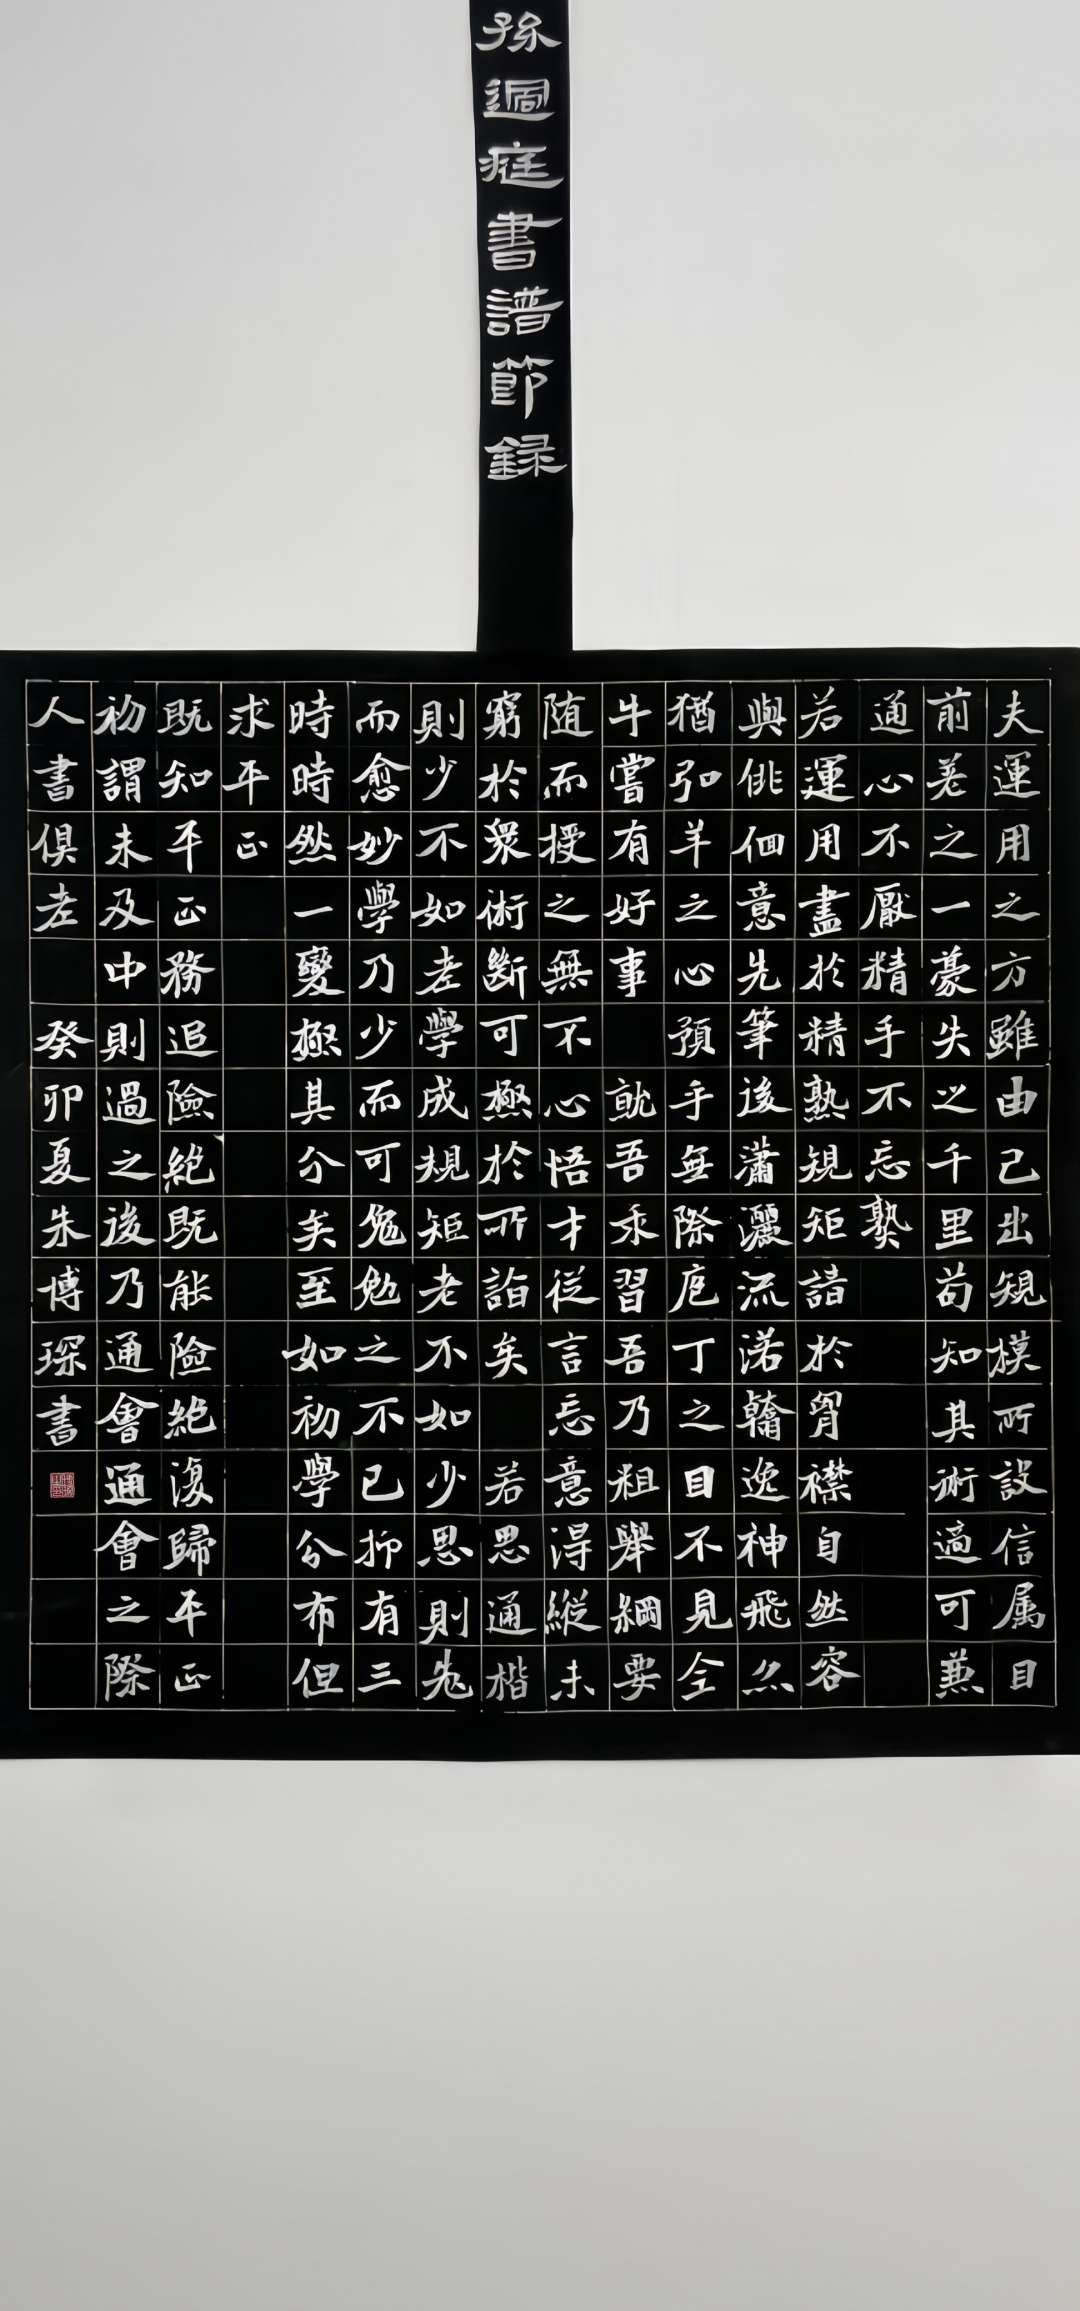 孫過庭書譜節録
夫運用之方雖由己出規模所設信属目
前差之一豪失之千里苟知其術適可兼
通心不厭精手不忘熟
若運用盡於精熟規矩諳於胷襟自然容
與俳佪意先筆後瀟灑流落翰逸神飛亦
猶弘羊之心預乎無際庖丁之目不見全
牛嘗有好事 就吾求習吾乃粗舉綱要
随而授之無不心悟才從言忘意得縦未
窮於衆術斷可極於所詣矣 若思通楷
則少不如老學成規矩老不如少思則老
而愈妙學乃少而可勉勉之不已抑有三
時時然一變極其分矣至如初學分布但
求平正
既知平正務追險絶既能險絶復歸平正
初謂未及中則過之後乃通會通會之際
人書俱老 癸卯夏朱博琛書